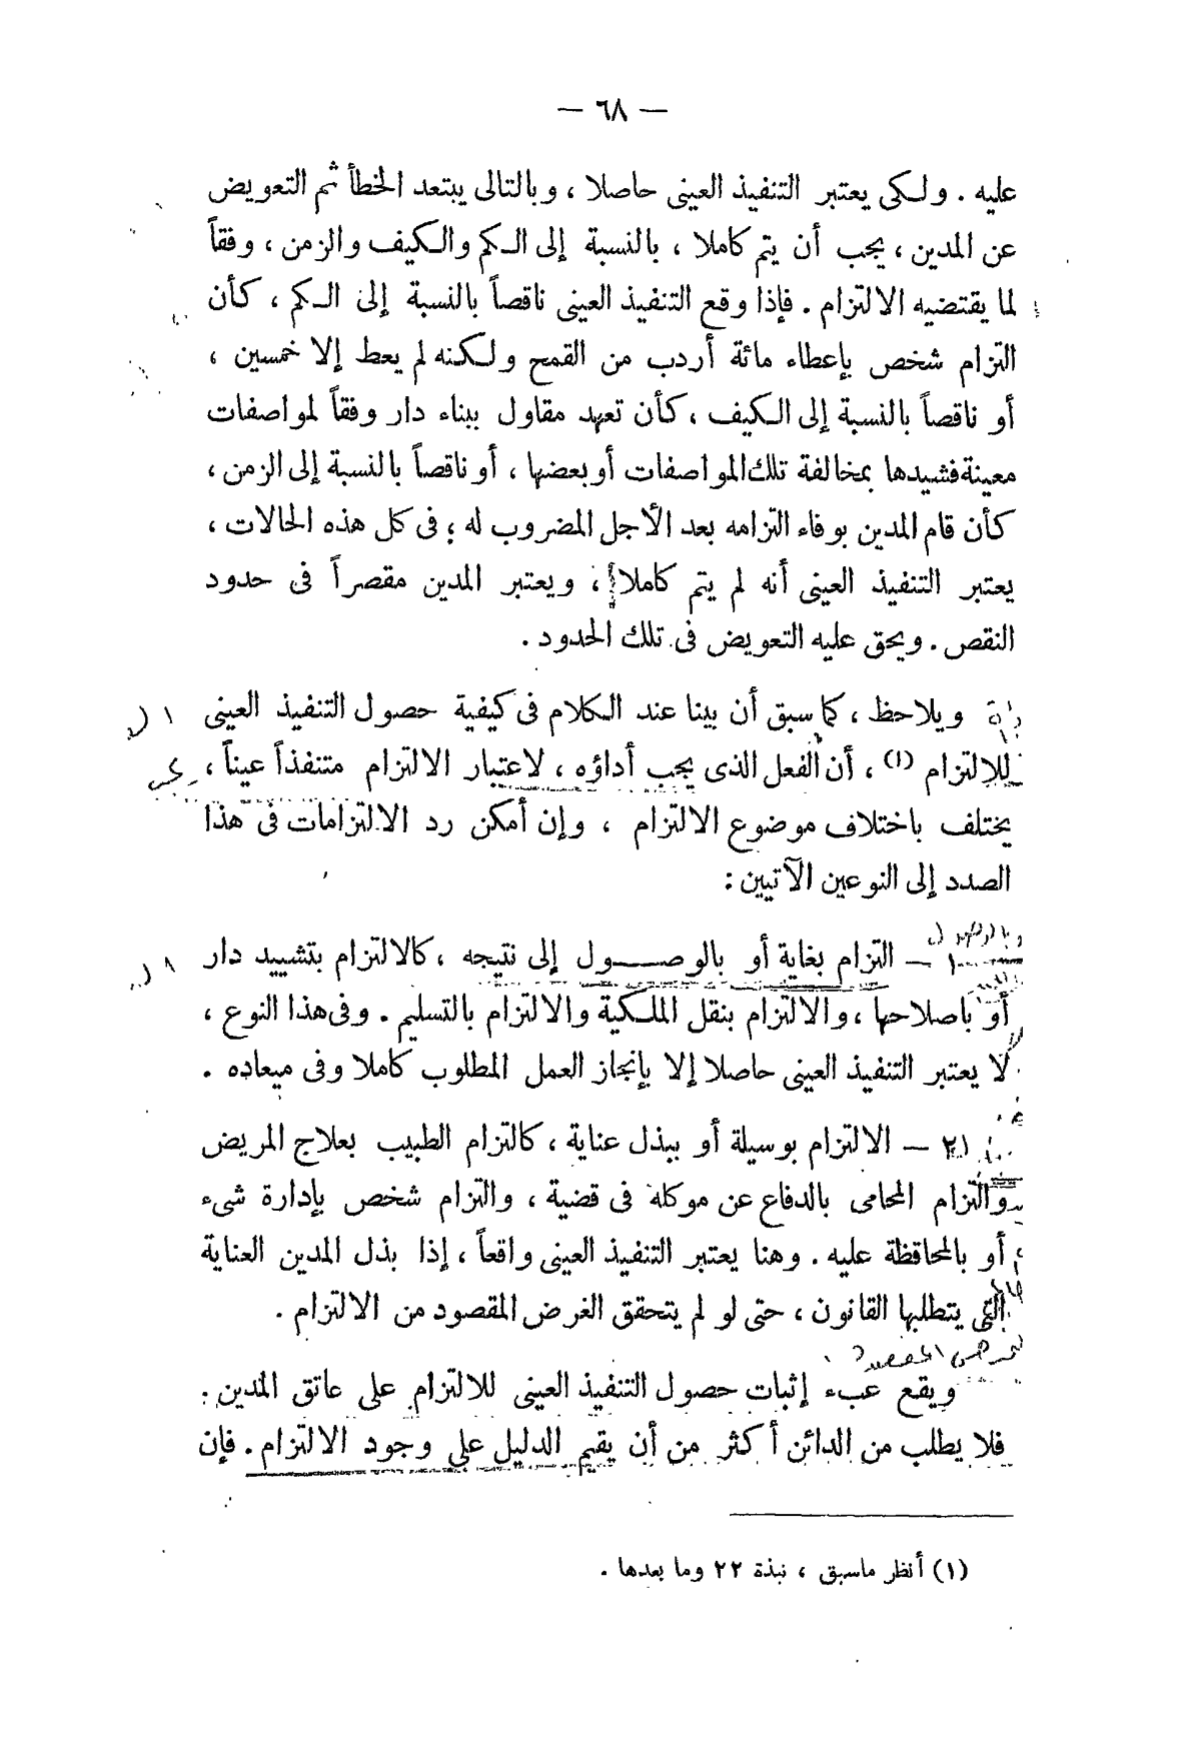 — ٦٨ —
عليه . ولكى يعتبر التنفيذ العينى حاصلا ، وبالتالى يبتعد الخطأ ثم التعويض
عن المدين ، يجب أن يتم كاملا ، بالنسبة إلى الكم والكيف والزمن ، وفقاً
لما يقتضيه الالتزام . فإذا وقع التنفيذ العينى ناقصاً بالنسبة إلى الكم ، كأن
التزام شخص بإعطاء مائة أردب من القمح ولكنه لم يعط إلا خمسين ،
أو ناقصاً بالنسبة إلى الكيف ، كأن تعهد مقاول ببناء دار وفقاً لمواصفات
معينة فشيدها بمخالفة تلك المواصفات أو بعضها ، أو ناقصاً بالنسبة إلى الزمن ،
كأن قام المدين بوفاء التزامه بعد الأجل المضروب له ؛ فى كل هذه الحالات ،
يعتبر التنفيذ العينى أنه لم يتم كاملا ، ويعتبر المدين مقصراً فى حدود
النقص . ويحق عليه التعويض فى تلك الحدود .
ويلاحظ ، كما سبق أن بينا عند الكلام فى كيفية حصول التنفيذ العينى
للالتزام (١) ، أن الفعل الذى يجب أداؤه ، لاعتبار الالتزام متنفذاً عيناً ،
يختلف باختلاف موضوع الالتزام ، وإن أمكن رد الالتزامات فى هذا
الصدد إلى النوعين الآتيين :
وبالوصول
١ — التزام بغاية أو بالوصول إلى نتيجه ، كالالتزام بتشييد دار
أو باصلاحها ، والالتزام بنقل الملكية والالتزام بالتسليم . وفى هذا النوع ،
لا يعتبر التنفيذ العينى حاصلا إلا بإنجاز العمل المطلوب كاملا وفى ميعاده .
٢ — الالتزام بوسيلة أو ببذل عناية ، كالتزام الطبيب بعلاج المريض
والتزام المحامى بالدفاع عن موكله فى قضية ، والتزام شخص بإدارة شىء
أو بالمحافظة عليه . وهنا يعتبر التنفيذ العينى واقعاً ، إذا بذل المدين العناية
التى يتطلبها القانون ، حتى لو لم يتحقق الغرض المقصود من الالتزام .
ويقع عبء إثبات حصول التنفيذ العينى للالتزام على عاتق المدين .
فلا يطلب من الدائن أكثر من أن يقيم الدليل على وجود الالتزام . فإن
(١) أنظر ماسبق ، نبذة ٢٢ وما بعدها .